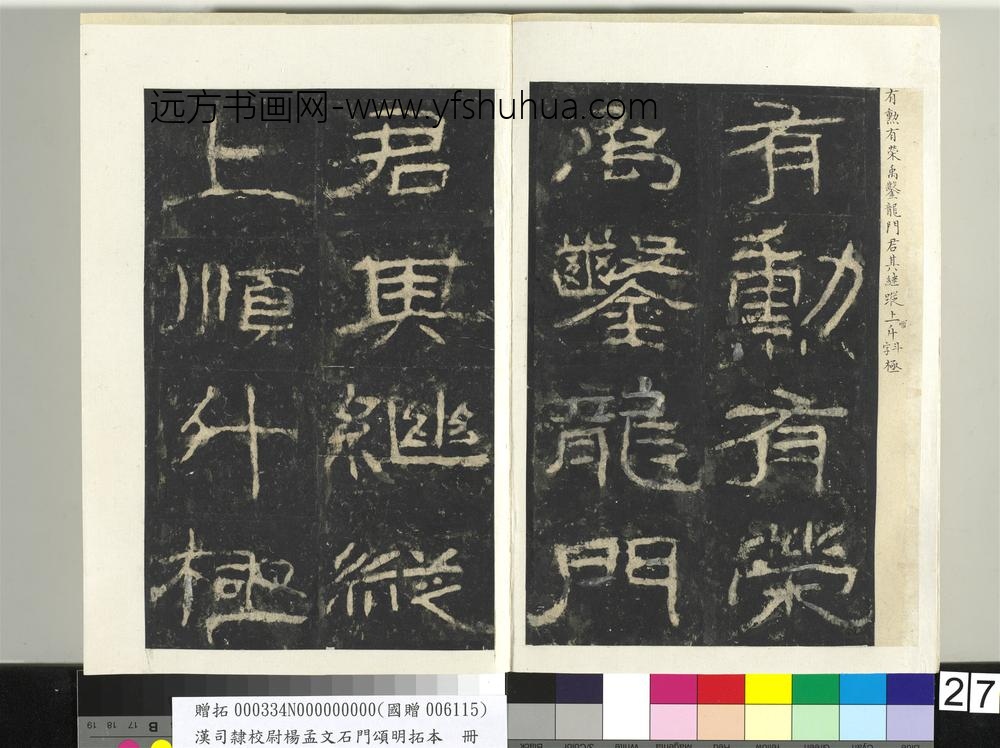 远方书画网-www.yfshuhua.com
有勲有荣禹鑿龍門君其継蹤上斗極
有勳有榮
禹鑿龍門
君其繼縱
上順斗極
27
贈拓 000334N000000000(國贈 006115)
漢司隸校尉楊孟文石門頌明拓本 冊
19 18 17 B
Blue Cyan Green Yellow Red Magenta White 3/Color Black